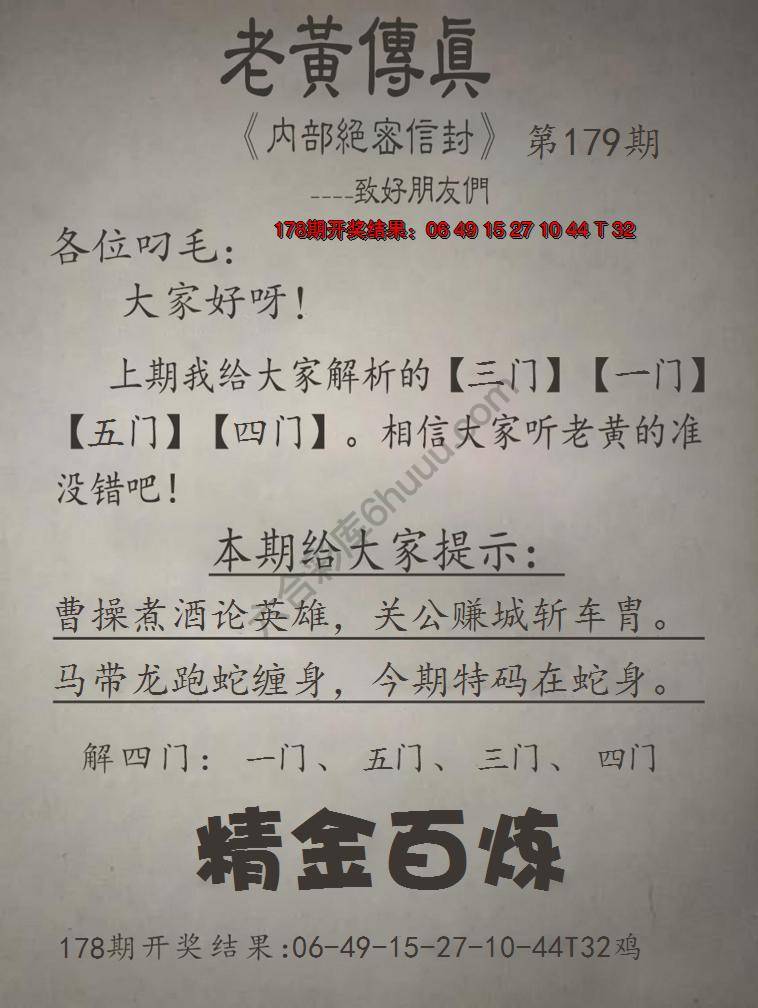 老黃傳眞
《内部絕密信封》 第179期
----致好朋友們
178期开奖结果：06 49 15 27 10 44 T 32
各位叼毛：
大家好呀！
上期我给大家解析的【三门】【一门】
【五门】【四门】。相信大家听老黄的准
没错吧！
本期给大家提示：
曹操煮酒论英雄，关公赚城斩车胄。
马带龙跑蛇缠身，今期特码在蛇身。
解四门：一门、五门、三门、四门
精金百炼
178期开奖结果:06-49-15-27-10-44T32鸡
六合彩库6huuu.com